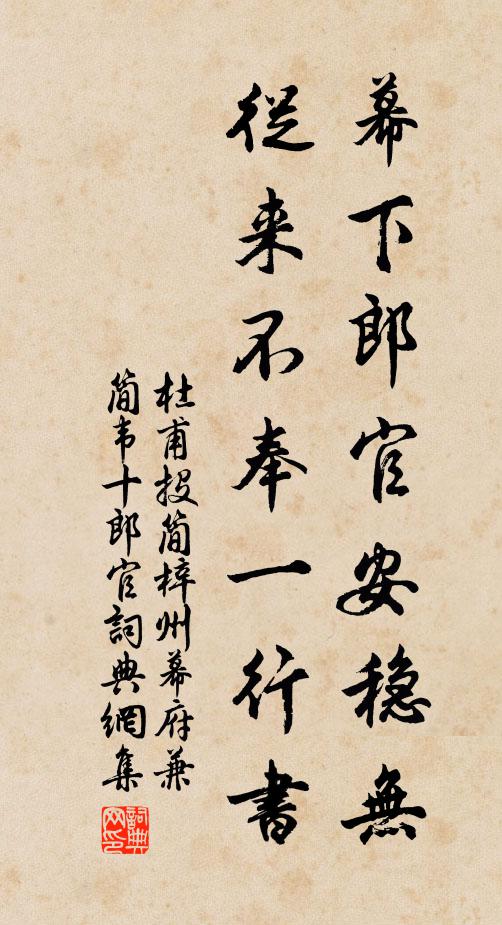 幕下郎官安穏無
從来不奉一行書
杜甫投简梓州幕府兼
简韦十郎官詞典網集
詞典网印